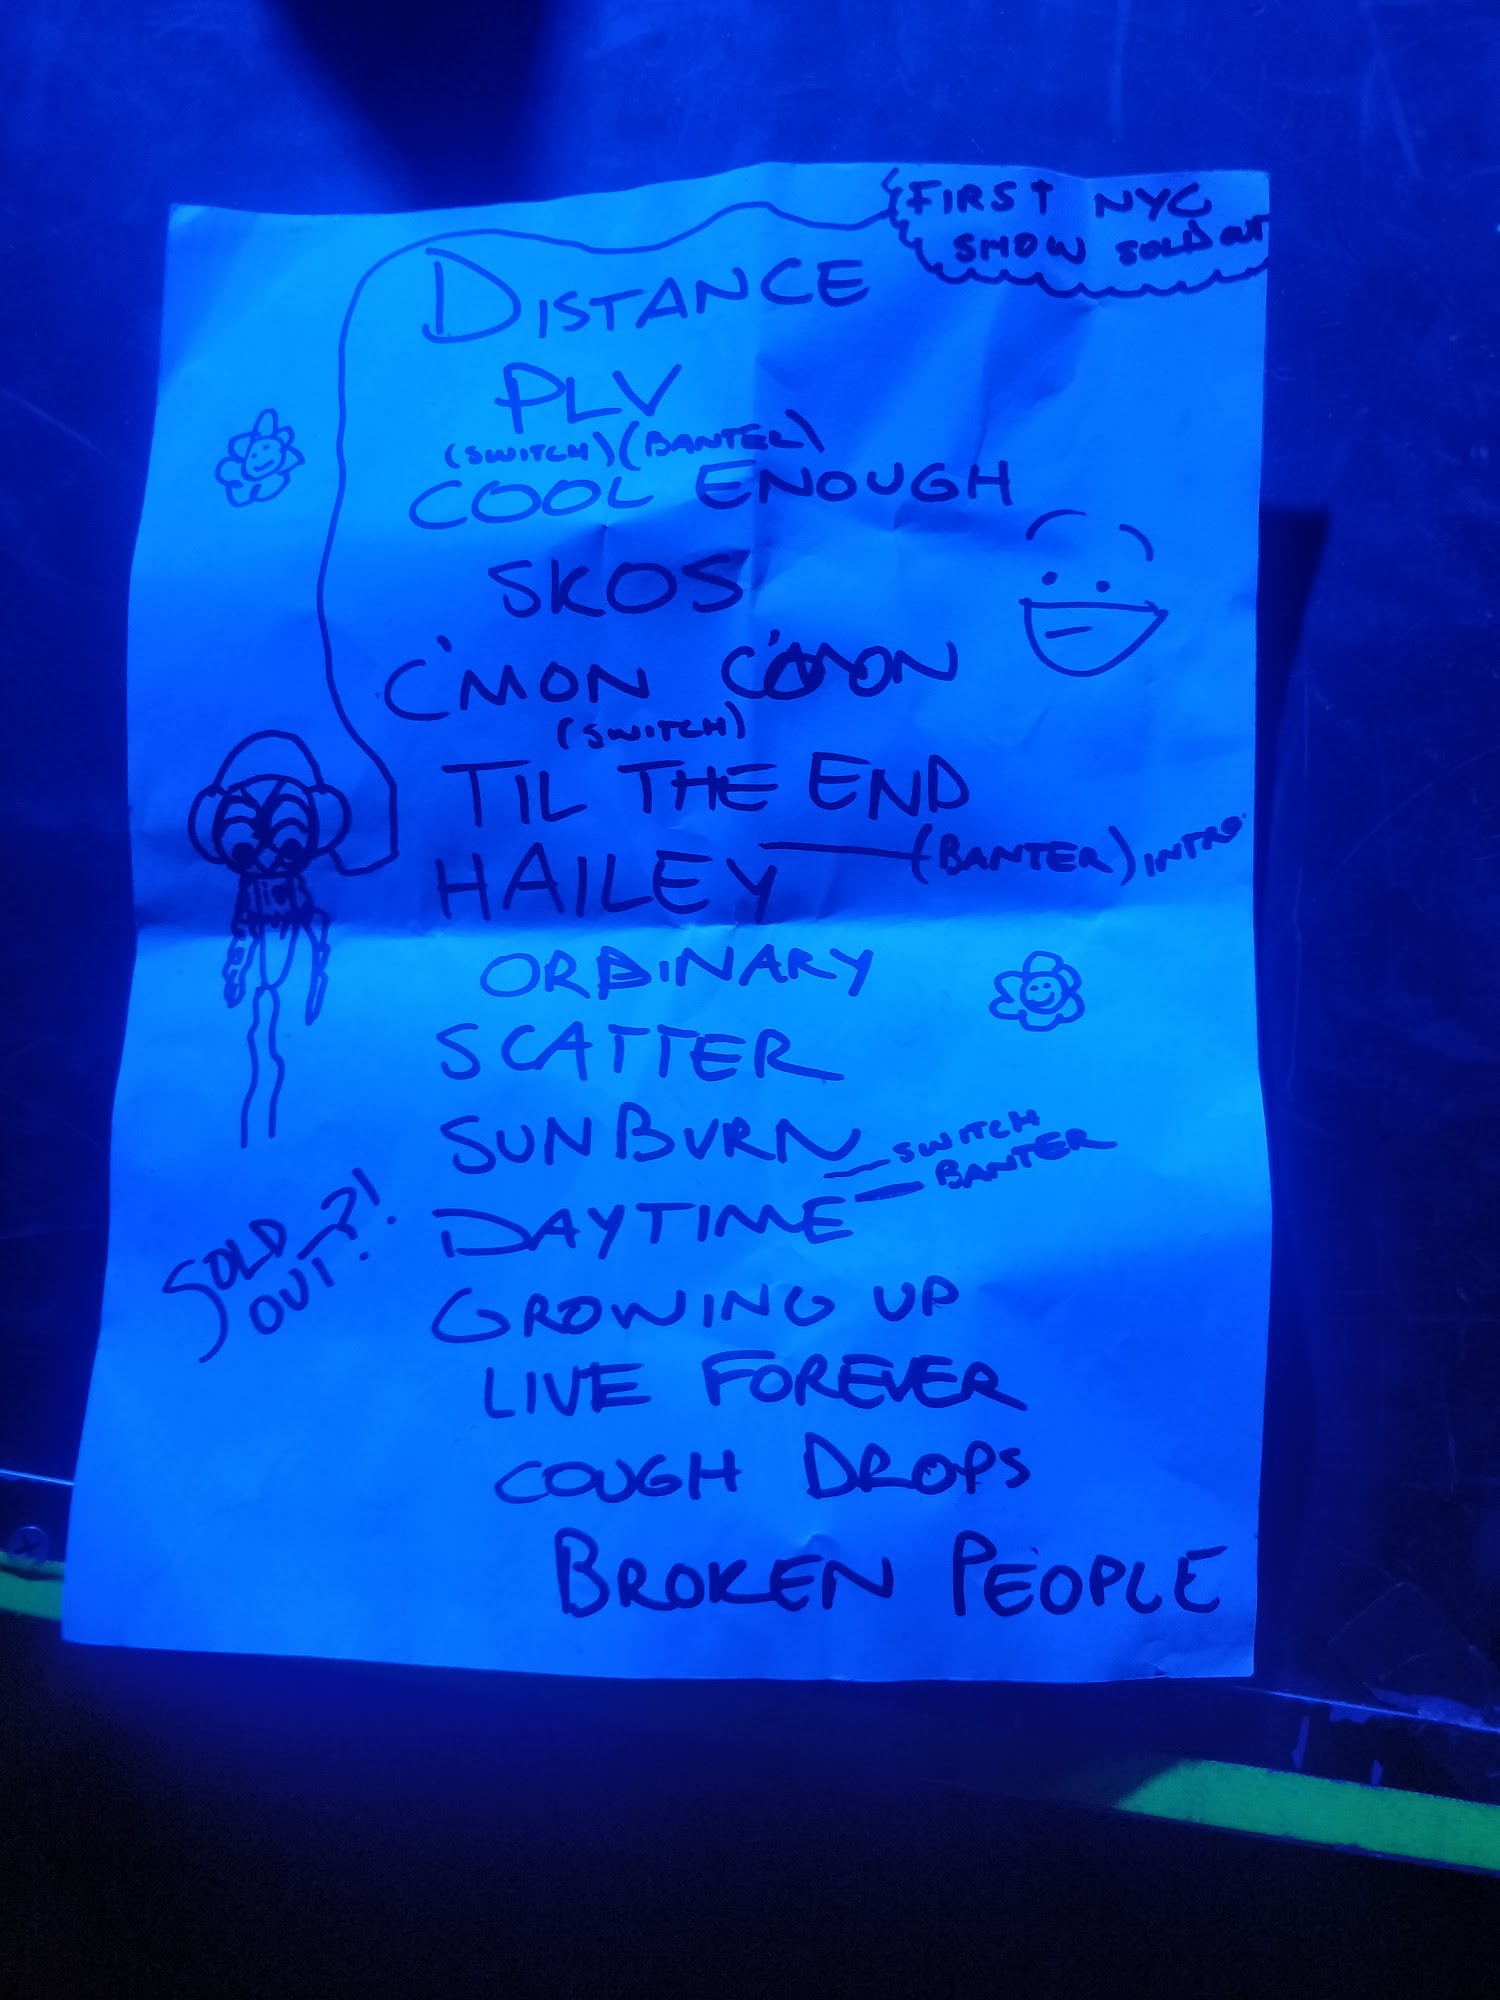 FIRST NYC
SHOW SOLD OUT
DISTANCE
PLV
(SWITCH) (BANTER)
COOL ENOUGH
SKOS
C'MON C'MON
(SWITCH)
TIL THE END
HAILEY — (BANTER) INTRO
ORDINARY
SCATTER
SUNBURN — SWITCH
— BANTER
DAYTIME
SOLD OUT?!
GROWING UP
LIVE FOREVER
COUGH DROPS
BROKEN PEOPLE